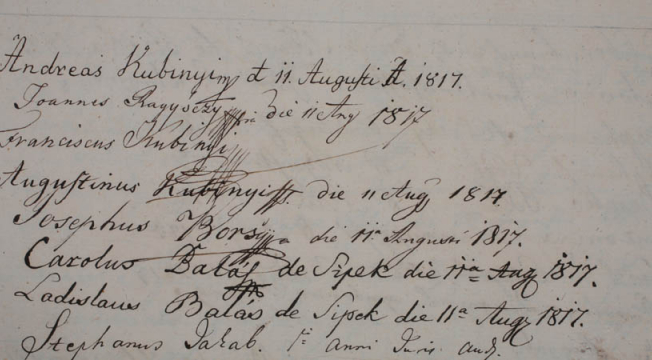 Andreas Kubinyi d 11. Augusti A. 1817.
Joannes die 11 Aug 1817
Franciscus Kubinyi
Augustinus Kubinyi die 11 Aug 1817
Josephus Borsy die 11a Augusti 1817.
Carolus Balás de Sipek die 11a Aug 1817.
Ladislaus Balás de Sipek die 11a Aug 1817.
Stephanus Jakab. anni Juris aud.